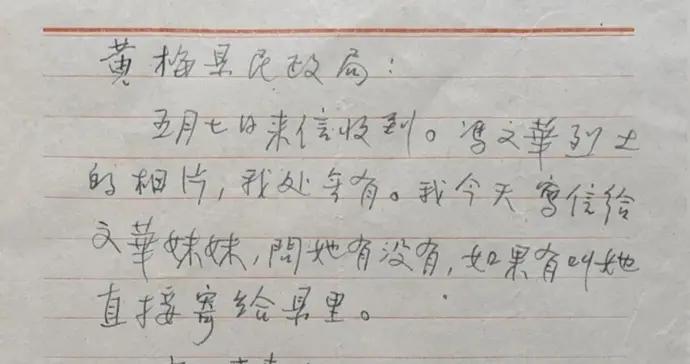 黄梅县民政局：
五月七日来信收到。冯文華烈士
的相片，我处无有。我今天寫信给
文華妹妹，問她有没有，如果有叫她
直接寄给县里。